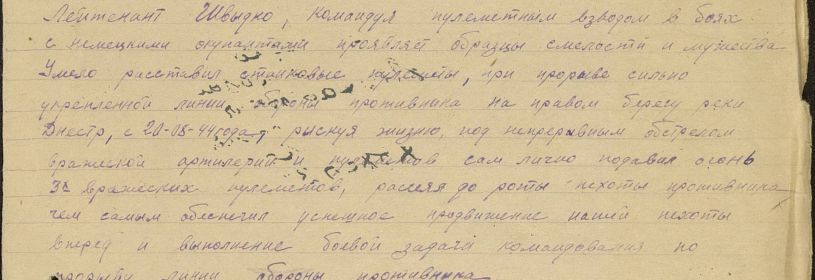 Лейтенант Швыдко, командуя пулеметным взводом в боях
с немецкими окупантами проявляет образцы смелости и мужества
Умело расставил станковые пулеметы, при прорыве сильно
укрепленной линии обороны противника на правом берегу реки
Днестр, с 20-08-44 года, рискуя жизнью, под непрерывным обстрелом
вражеской артилерии и пулеметов сам лично подавил огонь
3х вражеских пулеметов, рассеял до роты пехоты противника,
чем самым обеспечил успешное продвижение нашей пехоты
вперед и выполнение боевой задачи командования по
прорыву линии обороны противника